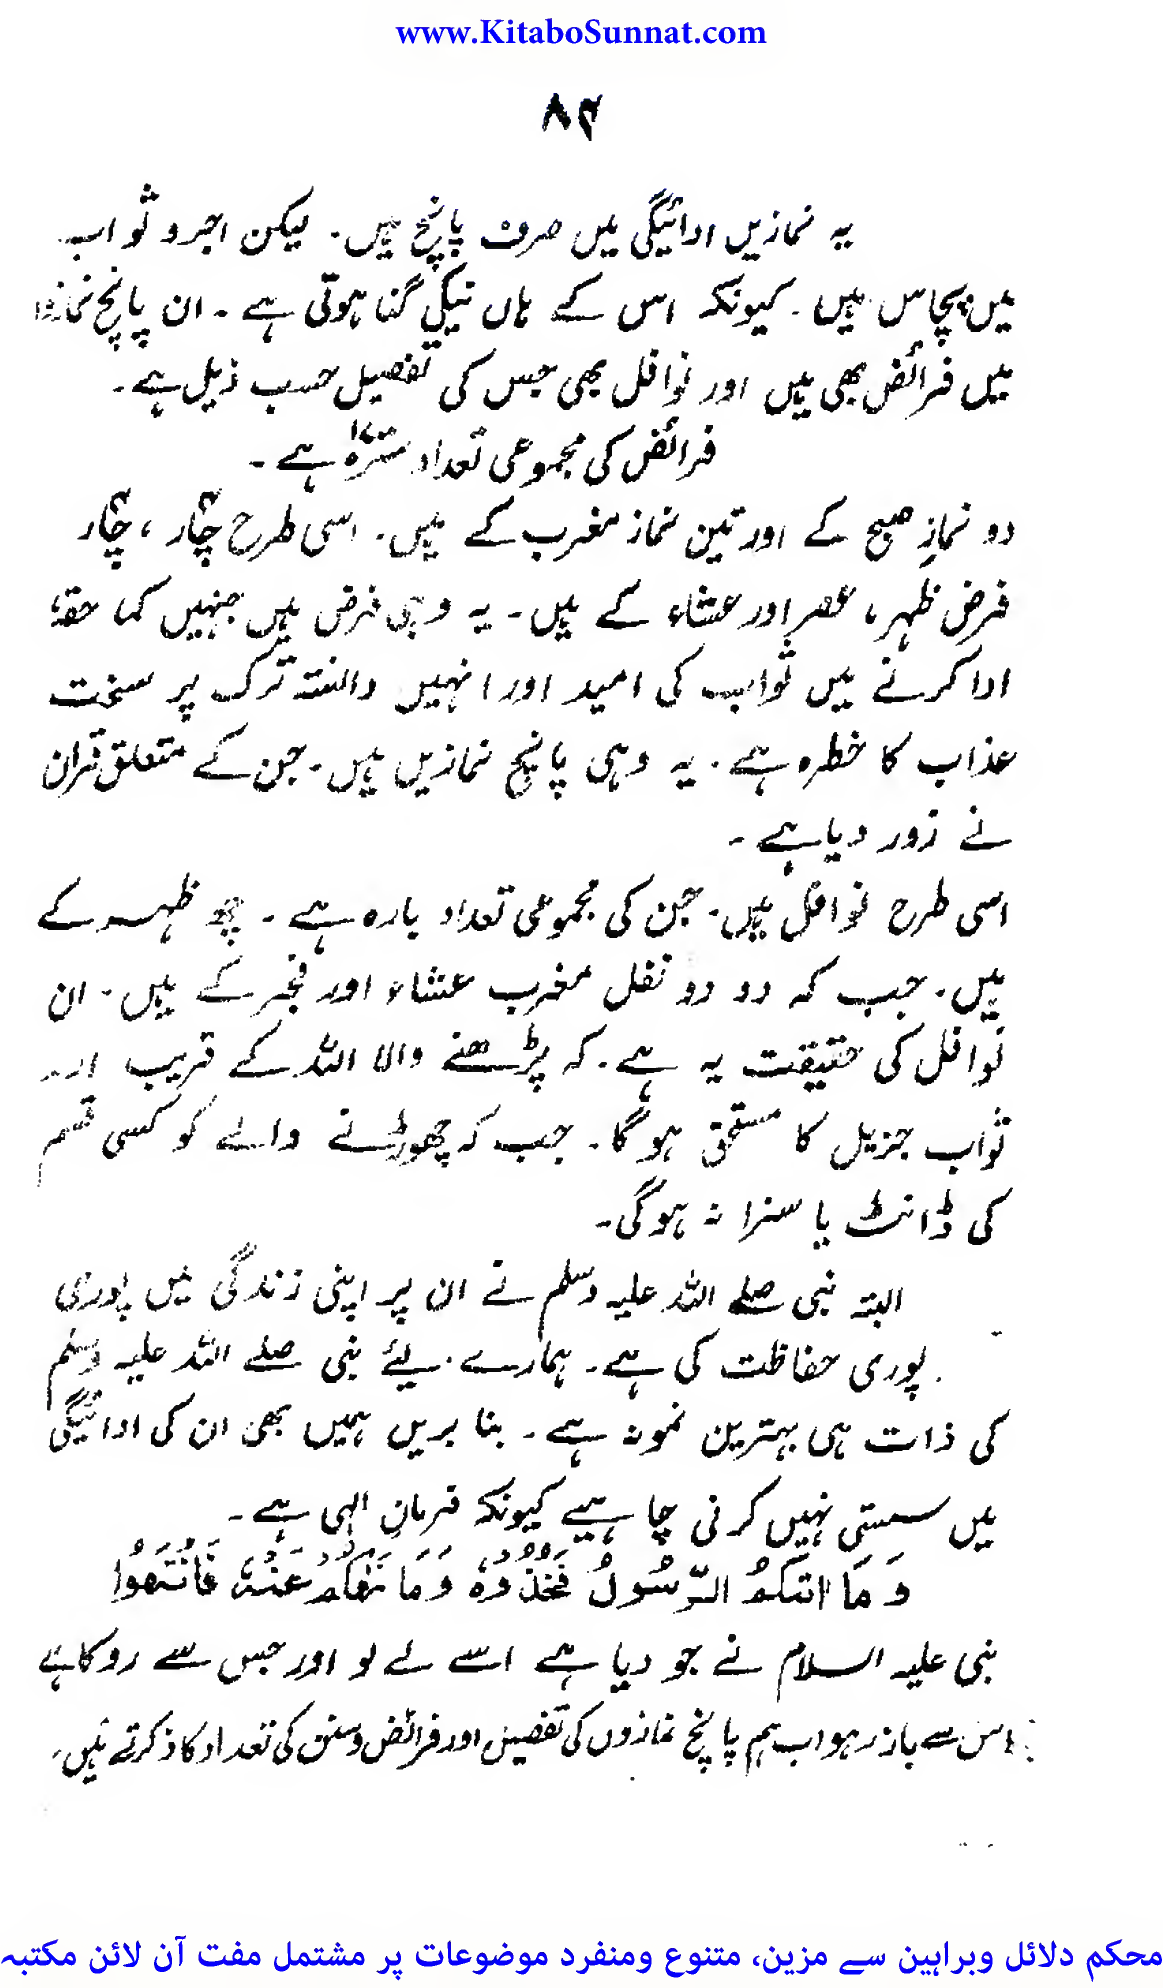 www.KitaboSunnat.com
۸۴
یہ نمازیں ادائیگی میں صرف پانچ ہیں۔ لیکن اجر و ثواب
میں پچاس ہیں۔ کیونکہ اس کے ہاں نیکی گنا ہوتی ہے ۔ ان پانچ نمازوں
میں فرائض بھی ہیں اور نوافل بھی جس کی تفصیل حسب ذیل ہے۔
فرائض کی مجموعی تعداد سترہ۱۷ ہے ۔
دو نمازِ صبح کے اور تین نماز مغرب کے ہیں۔ اسی طرح چار۴ ، چار۴
فرض ظہر، عصر اور عشاء کے ہیں ۔ یہ وہی فرض ہیں جنہیں کما حقہٗ
ادا کرنے میں ثواب کی امید اور انہیں دانستہ ترک پر سخت
عذاب کا خطرہ ہے ۔ یہ وہی پانچ نمازیں ہیں۔ جن کے متعلق قرآن
نے زور دیا ہے ۔
اسی طرح نوافل ہیں۔ جن کی مجموعی تعداد بارہ ہے ۔ چھ ظہر کے
ہیں۔ جب کہ دو دو نفل مغرب عشاء اور فجر کے ہیں ۔ ان
نوافل کی حقیقت یہ ہے۔ کہ پڑھنے والا اللہ کے قریب اور
ثواب جزیل کا مستحق ہو گا۔ جب کہ چھوڑنے والے کو کسی قسم
کی ڈانٹ یا سزا نہ ہوگی۔
البتہ نبی صلے اللہ علیہ وسلم نے ان پر اپنی زندگی میں پوری
پوری حفاظت کی ہے۔ ہمارے لیئے نبی صلے اللہ علیہ وسلم
کی ذات ہی بہترین نمونہ ہے ۔ بنا بریں ہمیں بھی ان کی ادائیگی
میں سستی نہیں کرنی چاہیے کیونکہ فرمانِ الہی ہے ۔
وَمَا اٰتٰكُمُ الرَّسُولُ فَخُذُوهُ وَمَا نَهٰكُمْ عَنْهُ فَانْتَهُوا
نبی علیہ السلام نے جو دیا ہے اسے لے لو اور جس سے روکا ہے
اس سے باز رہو اب ہم پانچ نمازوں کی تفصیل اور فرائض و سنن کی تعداد کا ذکر کرتے ہیں۔
محکم دلائل وبراہین سے مزین، متنوع ومنفرد موضوعات پر مشتمل مفت آن لائن مکتبہ